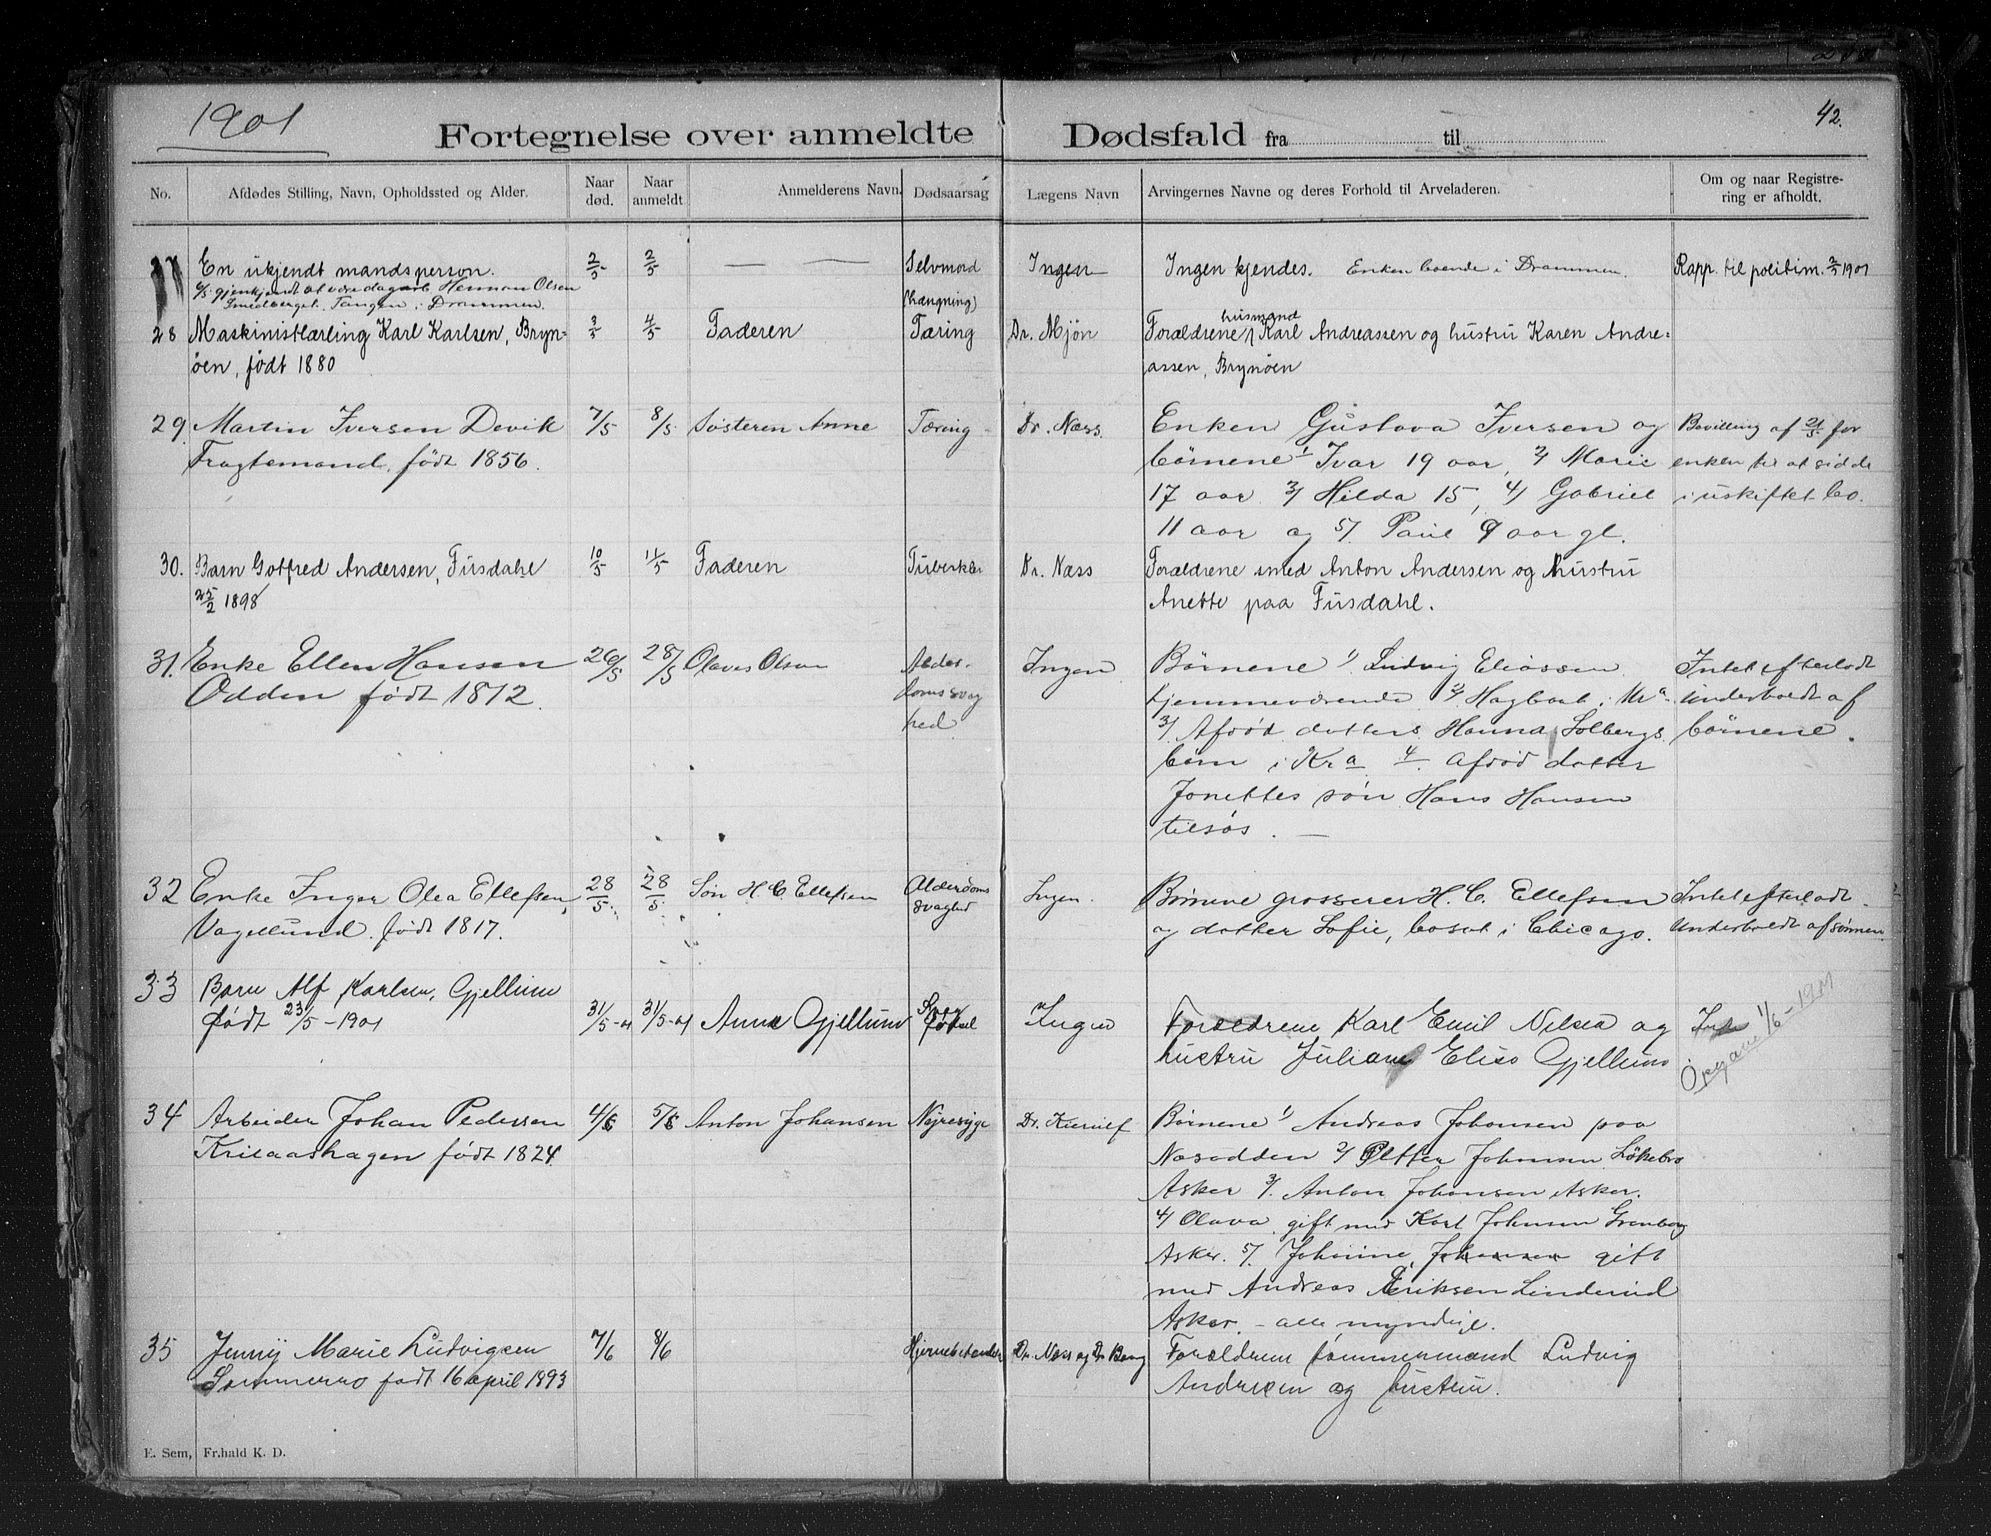 1901
42.
Fortegnelse over anmeldte Dødsfald fra til
No. Afdødes Stilling, Navn, Opholdssted og Alder. Naar død. Naar anmeldt Anmelderens Navn. Dødsaarsag Lægens Navn Arvingernes Navne og deres Forhold til Arveladeren. Om og naar Registrering er afholdt.
En ukjendt mandsperson. 2/5 2/5 — — Selvmord Ingen Ingen kjendes. Enken boende i Drammen. Rapp. til politim. 2/5 1901
gjenkjendt at være dagarb Herman Olsen (hængning)
Smedberget. Tangen i Drammen.
28 Maskinistlærling Karl Karlsen, Bryn- 3/5 4/5 Faderen Tæring Dr. Mjøn Forældrene husmand Karl Andreassen og hustru Karen Andre-
øen, født 1880 assen, Brynøen
29. Martin Iversen Devik 7/5 8/5 Søsteren Anne Tæring Dr. Næss. Enken Gustava Iversen og Bevilling af 21/5 for
Fragtemand, født 1856. børnene 1/ Ivar 19 aar, 2/ Marie enken til at sidde
17 aar 3/ Hilda 15, 4/ Gabriel i uskiftet bo.
11 aar og 5/ Paul 9 aar gl.
30. Barn Gotfred Andersen, Fusdahl 10/5 11/5 Faderen Tuberkler Dr. Næss Forældrene smed Anton Andersen og hustru
25/2 1898 Anette paa Fusdahl.
31. Enke Ellen Hansen 26/5 28/5 Olaves Olsen Alder- Ingen Børnene 1/ Ludvig Eliassen Intet efterladt
Odden født 1812. doms svag hjemmeværende 2/ Hagbart i Underholdt af
hed 3/ Afdød datters Hanna Solbergs børnene.
børn i Kra 4. Afdød datter
Jonettes søn Hans Hansen
tilsøs. —
32 Enke Inger Olea Ellefsen, 28/5 28/5 Søn H. C. Ellefsen Alderdoms Ingen. Børnene grosserer H. C. Ellefsen Intet efterladt.
Vogellund. født 1817. svaghed og datter Sofie, bosat i Chicago. Underholdt af sønnen
33 Barn Alf Karlsen, Gjellum
født 23/5 - 1901 31/5-01 31/5-01 Anna Gjellum født Ingen Forældrene Karl Emil Nilsen og 1/6-1901
hustru Juliane Elise Gjellum
34 Arbeider Johan Pedersen 4/6 5/6 Anton Johansen Nyresyge Dr. Kierulf Børnene 1/ Andreas Johansen paa
født 1824. Næsodden 2/ Petter Johansen Løkebro
Asker 3/. Anton Johansen Asker.
4/ Olava gift med Karl Johnsen
Asker. 5/. Johanne Johansen gift
med Andreas Eriksen Linderud
Asker. — alle myndige.
35 Jenny Marie Ludvigsen 7/6 8/6 Hjernebetændelse Dr. Næss og Dr Bang Forældrene tømmermand Ludvig
Sommerro født 16 april 1893 Andresen og hustru.
E. Sem, Fr.hald K. D.